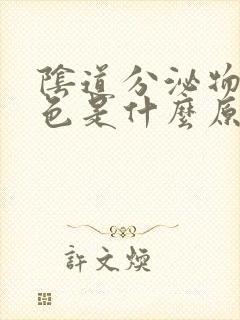 陰道分泌物
色是什麼原
許文煥